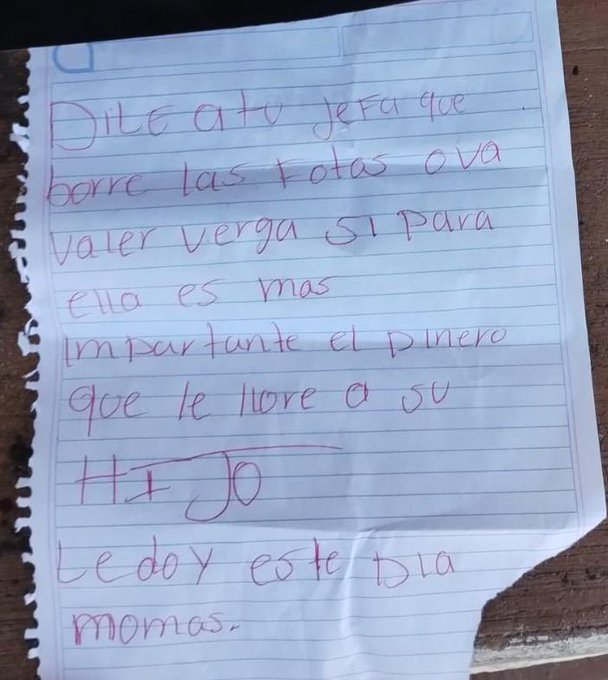 DilE a tu jefa que
borre las fotas o va
valer verga si para
ella es mas
impartante el dinero
que le llore a su
HIJO
Le doy este Dia
momas.